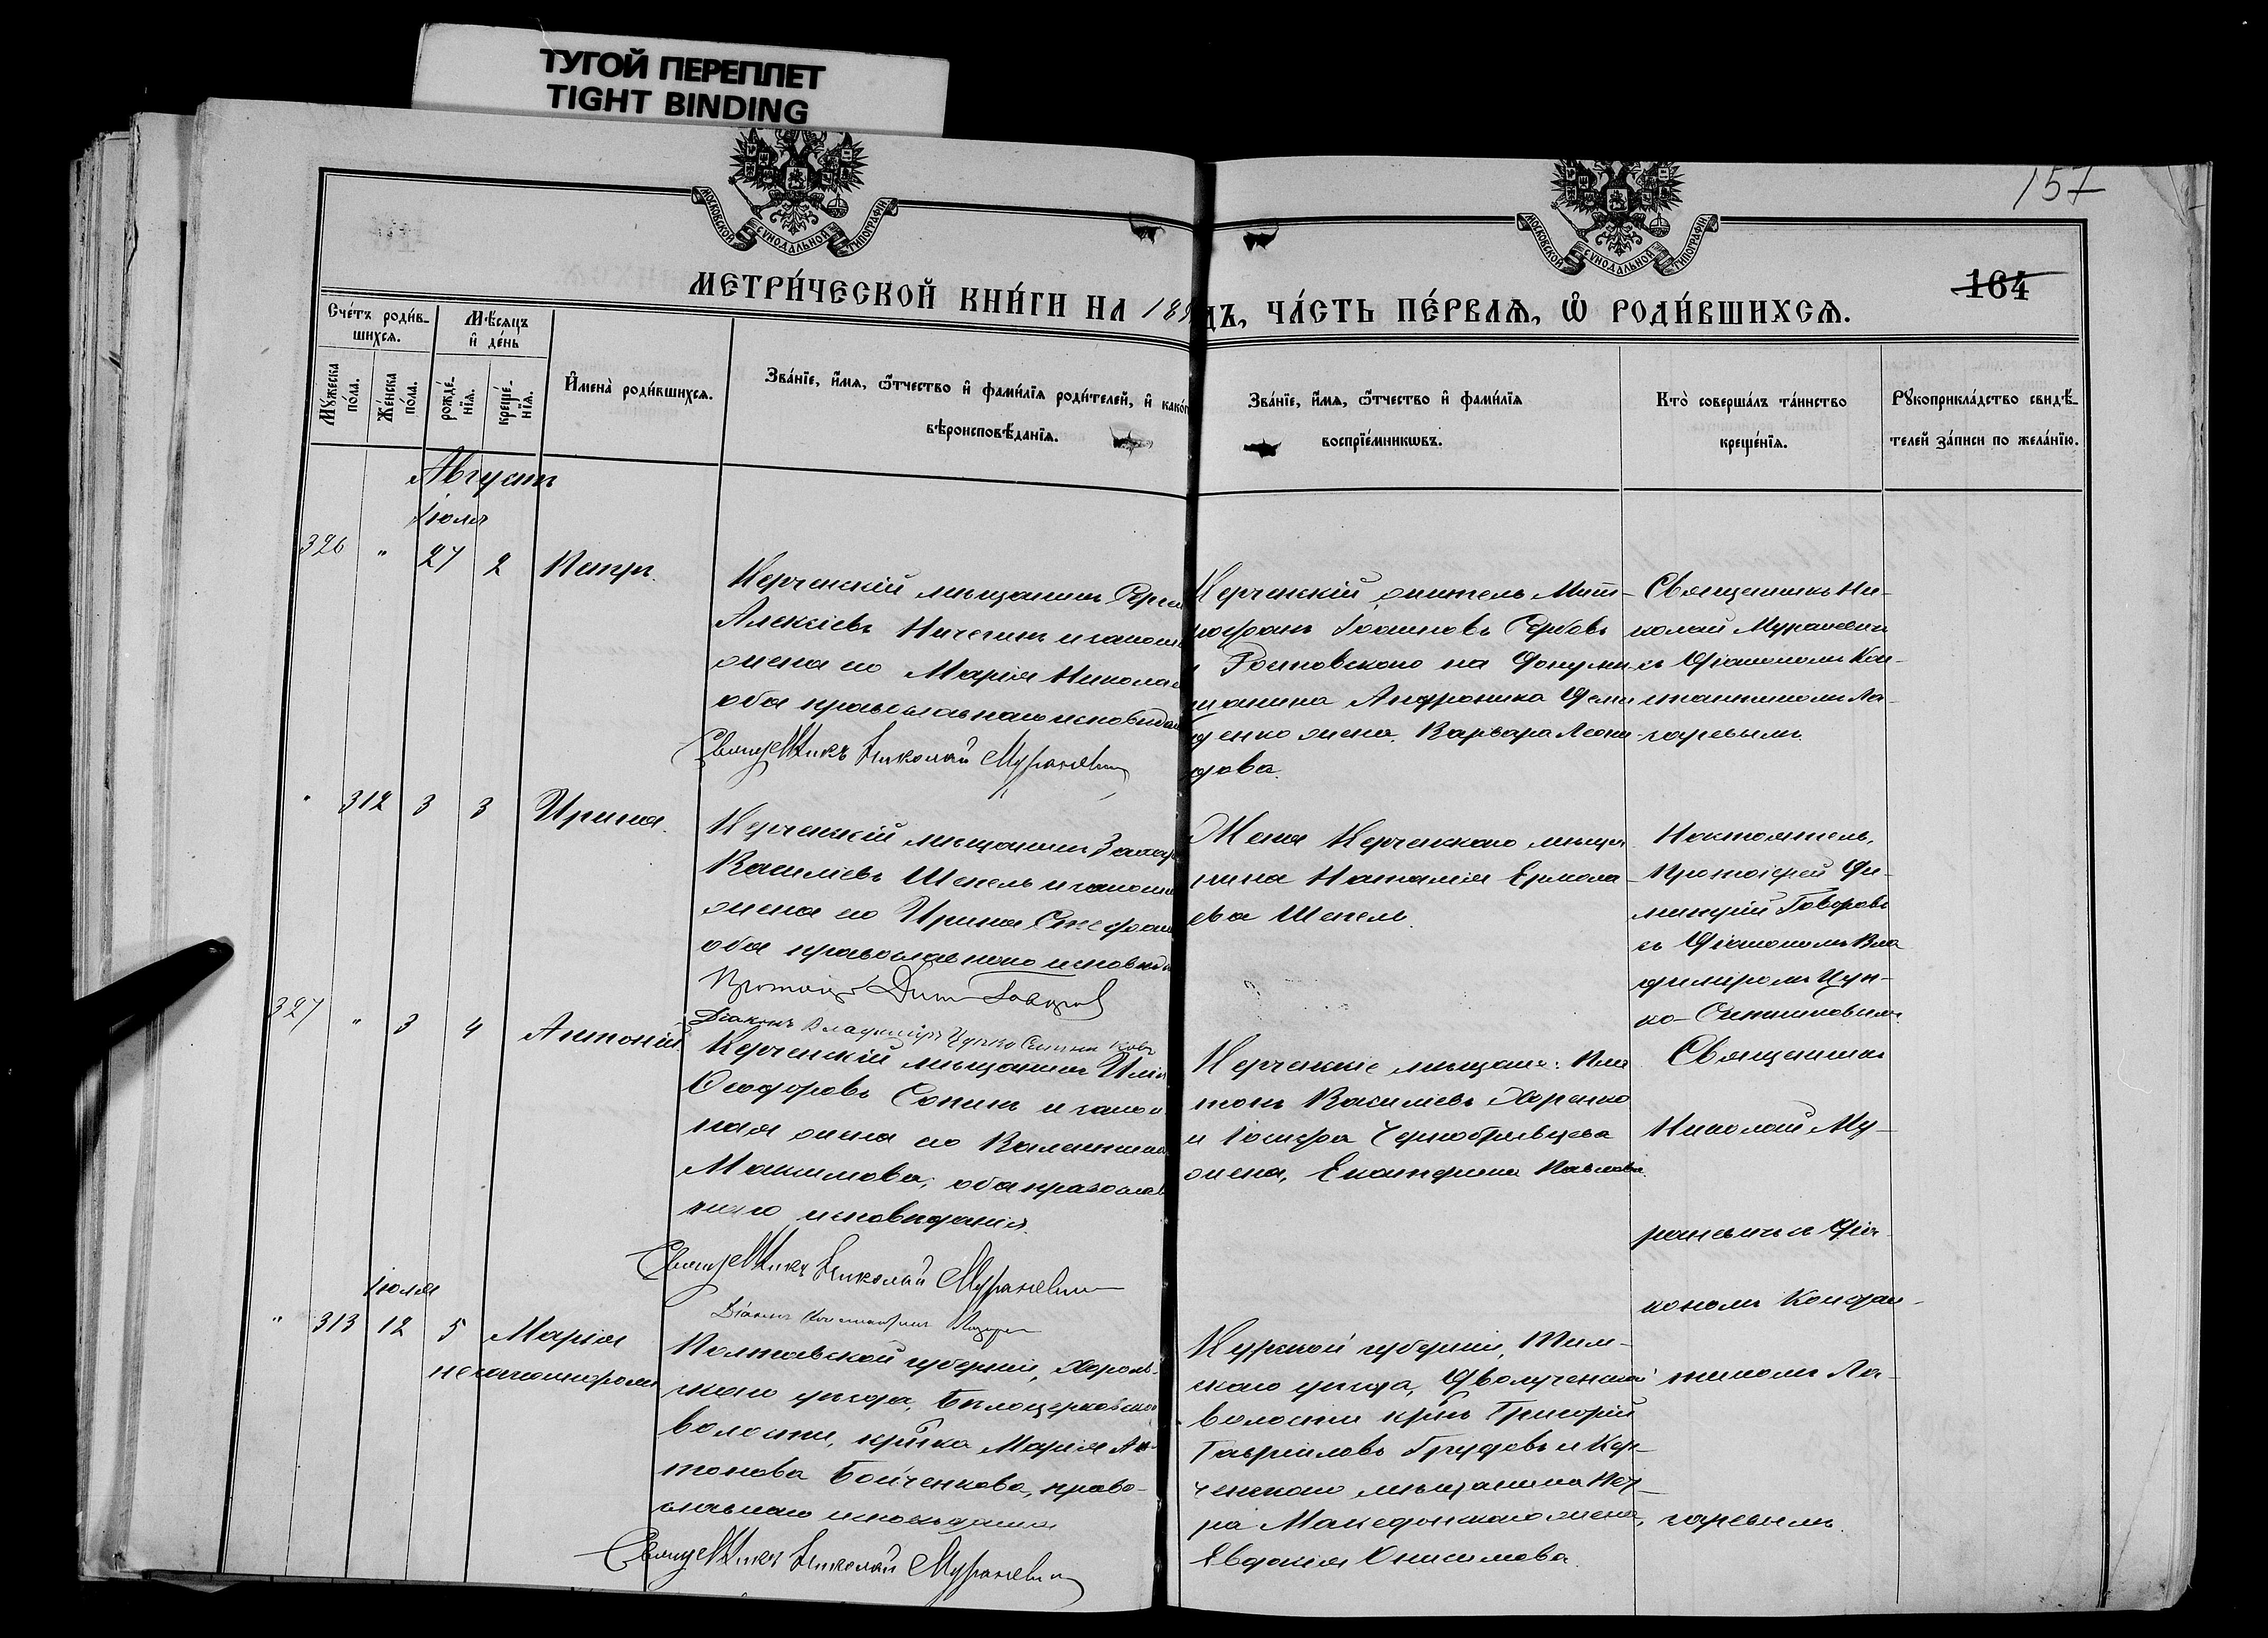 ТУГОЙ ПЕРЕПЛЕТ
TIGHT BINDING
МОСКОВСКОЙ СѴНОДАЛЬНОЙ ТИПОГРАФІИ
МОСКОВСКОЙ СѴНОДАЛЬНОЙ ТИПОГРАФІИ
157
164
МЕТРИ́ЧЕСКОЙ КНИ́ГИ НА 189
ДЪ, ЧА́СТЬ ПЕ́РВАѦ, Ѡ҆ РОДИ́ВШИХСѦ.
Сче́тъ роди́в-
шихсѧ.
Мꙋ́жеска по́ла.
Же́нска по́ла.
Мѣ́сѧцъ
и҆ де́нь
рожде́-
нїѧ.
креще́-
нїѧ.
И҆мена̀ роди́вшихсѧ.
Зва́нїе, и҆́мѧ, ѻ҆́тчество и҆ фами́лїѧ роди́телей, и҆ како́г
вѣроисповѣ́данїѧ.
Зва́нїе, и҆́мѧ, ѻ҆́тчество и҆ фами́лїѧ
воспрїе́мникѡвъ.
Кто̀ соверша́лъ та́инство
креще́нїѧ.
Рꙋкоприкла́дство свидѣ́-
телей за́писи по жела́нїю.
Августъ
Іюля
326 " 27 2 Петръ.
Керченскій мѣщанинъ Сергѣй
Алексіевъ Ничегинъ и законн
жена его Марія Николае
оба православнаго исповѣдан
Священникъ Николай Мураневичъ
Керченскій житель Мит-
рофанъ Іоанновъ Сербовъ
и Ростовскаго на Дону мѣ
щанина Андроника Деми
денко жена Варвара Леони-
дова.
Священникъ Ни-
колай Мураневичъ
съ Діакономъ Кон-
стантиномъ Ла-
заревымъ.
" 312 3 3 Ирина.
Керченскій мѣщанинъ Захар
Василіевъ Шепель и законн
жена его Ирина Стефан
оба православнаго исповѣда
Протоіер Дим Говоров
Діаконъ Владиміръ Цунко Ситников
Жена Керченскаго мѣща
нина Наталія Ермола-
ева Шепель.
Настоятель,
Протоіерей Ди-
митрій Говоровъ
съ Діакономъ Вла
диміромъ Цун-
ко-Ситниковымъ.
327 " 3 4 Антоній
Керченскій мѣщанинъ Илія
Ѳеодоровъ Сопинъ и закон
ная жена его Валентина
Максимова, оба православ
наго исповѣданія.
Священникъ Николай Мураневичъ
Діаконъ Константинъ Лазаре
Керченскіе мѣщане: Пла
тонъ Василіевъ Харченко
и Іосифа Чернобривцева
жена, Екатерина Павлова.
Священникъ
Николай Му-
раневичъ съ Діа
кономъ Констан-
тиномъ Ла-
заревымъ.
Іюля
" 313 12 5 Марія
незаконнорожд
Полтавской губерніи, Хороль-
скаго уѣзда, Бѣлоцерковской
волости, кр̃нка Марія Ан-
тонова Бойченкова, право-
славнаго исповѣданія
Священникъ Николай Мураневичъ
Курской губерніи, Тим-
скаго уѣзда, Дволученской
волости кр̃нъ Григорій
Гавриловъ Грудовъ и Кер-
ченскаго мѣщанина Пет-
ра Македонскаго жена,
Евдокія Онисимова.